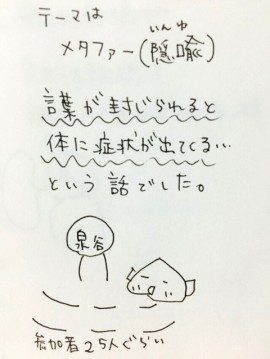 テーマは
いんゆ
メタファー(隠喩)
言葉が封じられると
体に症状が出てくる…
という話でした。
泉谷
参加者25人ぐらい